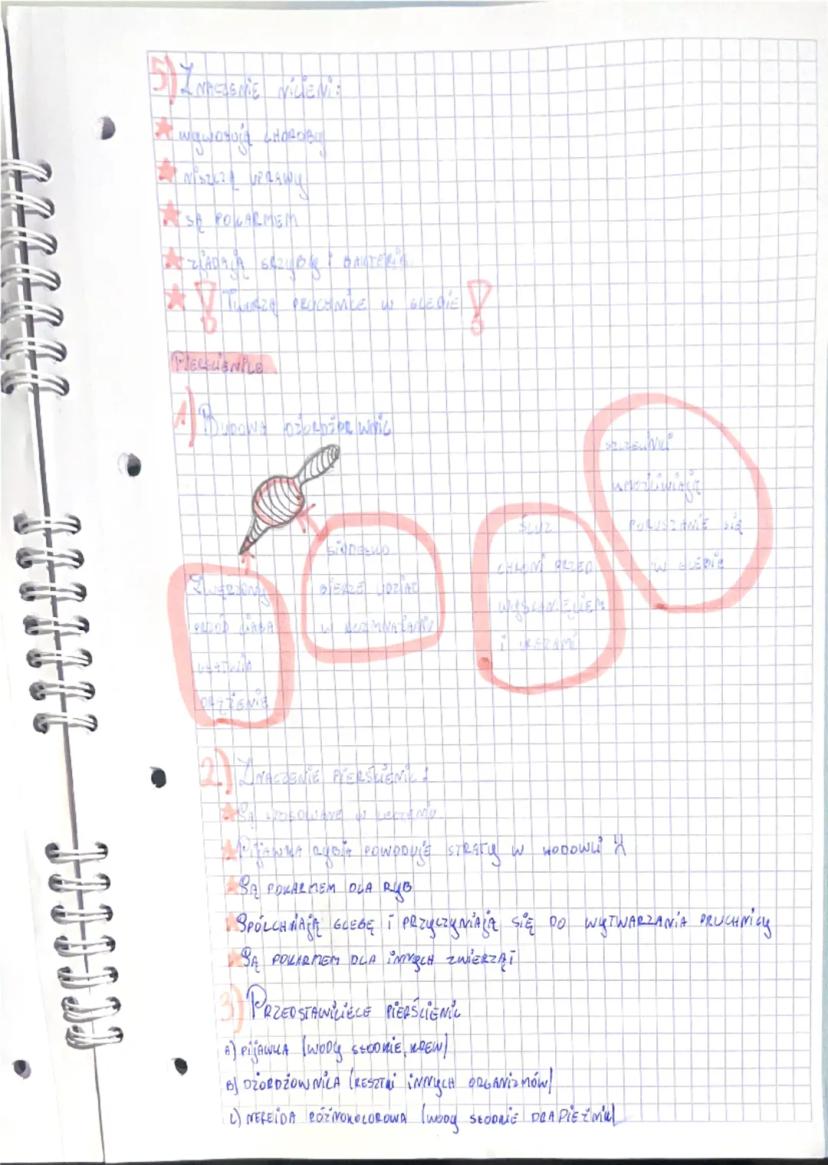 5) Znaczenie nicieni:
wywołują choroby
niszczą uprawy
są pokarmem
zjadają grzyby i bakterie
Tworzą pruchnice w glebie
Pierścienice
1) Budowa dżordżownic
szczecinki
umożliwiają
poruszanie się
w glebie
Śluz
chroni przed
wyschnięciem
i urazami
siodełko
bierze udział
w rozmnażaniu
Zwężony
przód ciała
ułatwia
drążenie
2) Znaczenie pierścienic:
Są stosowane w leczeniu
Pijawka rybia powoduje straty w hodowli
Są pokarmem dla ryb
Spólchniają glebę i przyczyniają się do wytwarzania pruchnicy
Są pokarmem dla innych zwierząt
3) Przedstawiciele pierścienic
A) Pijawka (wody słodkie, krew)
B) Dżordżownica (resztki innych organizmów)
C) Nereida różnokolorowa (wody słodkie drapieżnik)